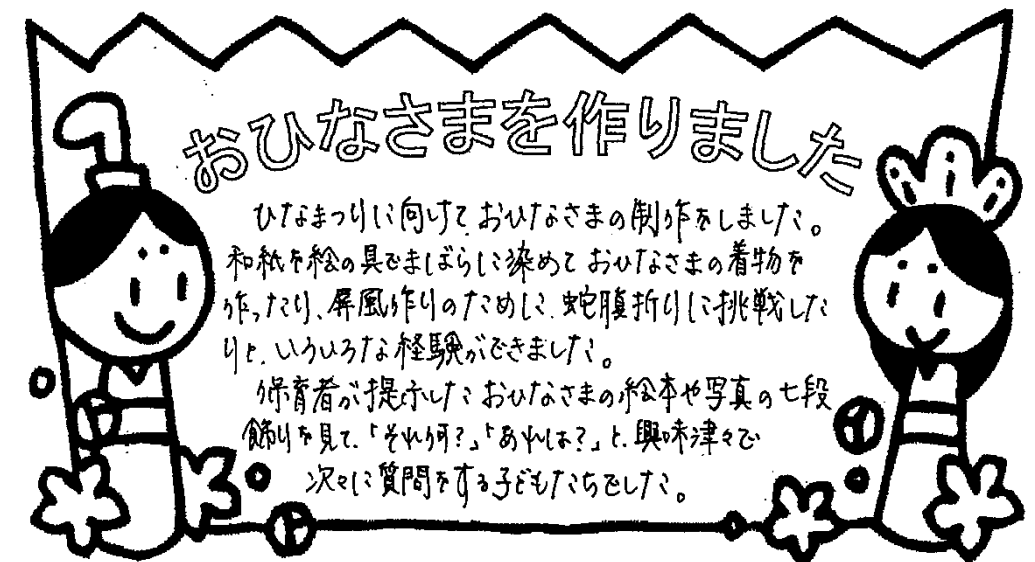 おひなさまを作りました
ひなまつりに向けて、おひなさまの制作をしました。
和紙を絵の具でまばらに染めておひなさまの着物を
作ったり、屏風作りのために、蛇腹折りに挑戦した
りと、いろいろな経験ができました。
保育者が提示したおひなさまの絵本や写真の七段
飾りを見て、「それ何?」「あれは?」と、興味津々で
次々に質問をする子どもたちでした。